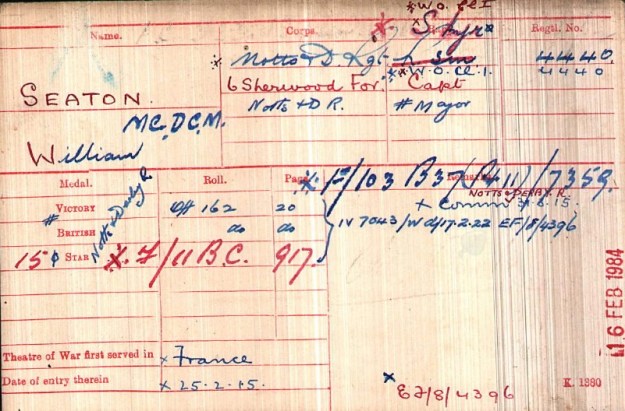 W.O. Cl I
Name. Corps. Regtl. No.
S/Sjr
Notts & D Rgt 4440.
W.O. Cl. 1. 4440
6 Sherwood For. Capt
SEATON. Notts & D R. # Major
M.C. D.C.M.
William
Medal. Roll. Page. Remarks.
103 B37 /7359.
NOTTS & DERBY. R.
VICTORY Off 162 20 Comm 31.8.15.
Notts & Derby R
# BRITISH do do IV 7043/W d/17.2.22 EF/8/4396
15 STAR F/11 B.C. 917.
16 FEB 1984
Theatre of War first served in x France
Date of entry therein x 25.2.15. K. 1380
EF/8/4396